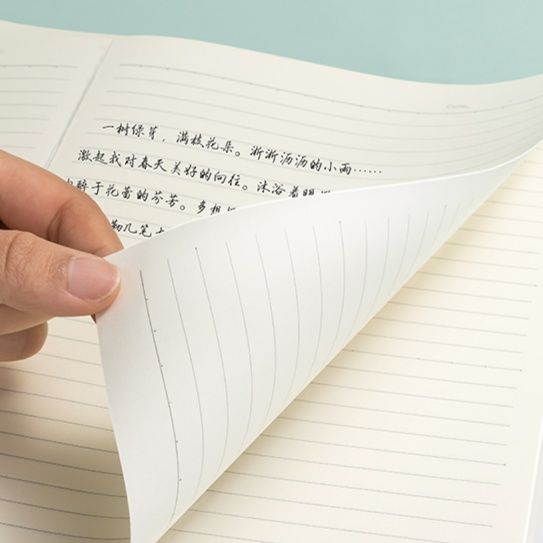 一树绿芽，满枝花朵。淅淅沥沥的小雨……
激起我对春天美好的向往。沐浴着明
醉于花蕾的芬芳。多想
勒几笔